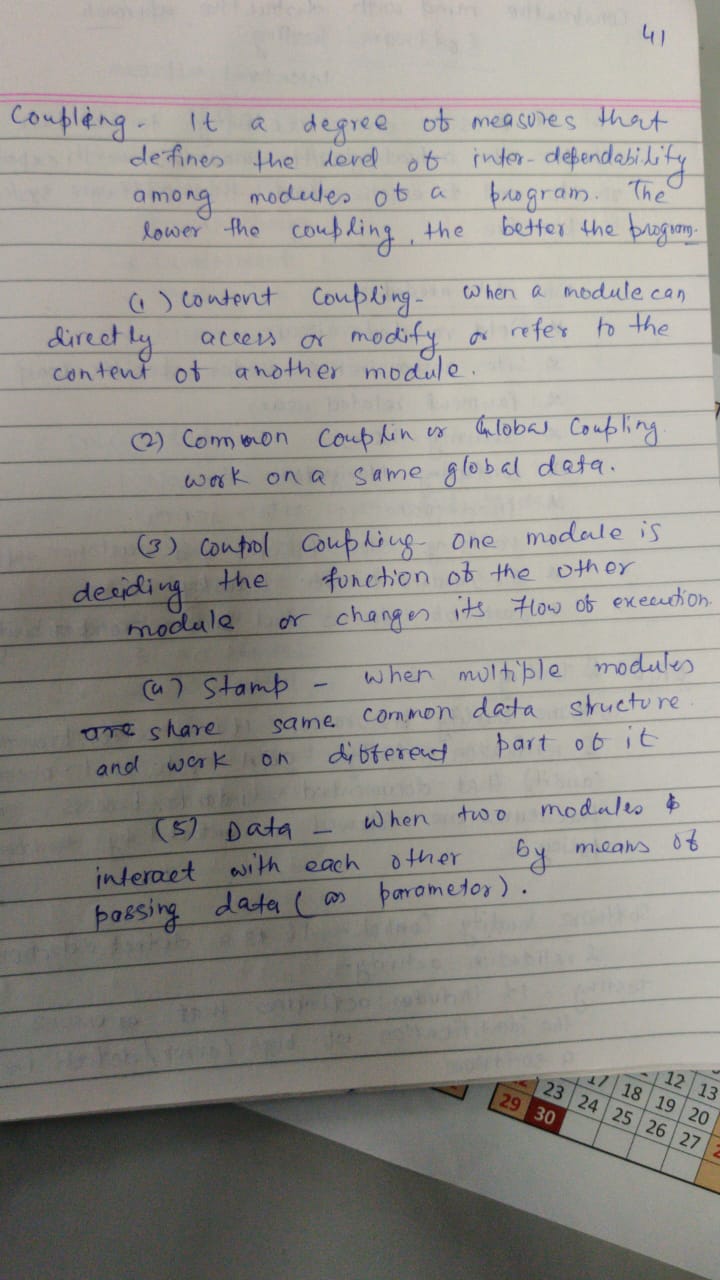 41
Coupling - It a degree of measures that
defines the level of inter-dependability
among modules of a program. The
lower the coupling, the better the program.
(1) Content Coupling - When a module can
directly access or modify or refer to the
content of another module.
(2) Common Couplin or Global Coupling
work on a same global data.
(3) Control Coupling - One module is
deciding the function of the other
module or changes its flow of execution.
(4) Stamp - when multiple modules
share same common data structure
and work on different part of it
(5) Data - When two modules
interact with each other by means of
passing data (as parameter).
12 13
17 18 19 20
23 24 25 26 27
29 30